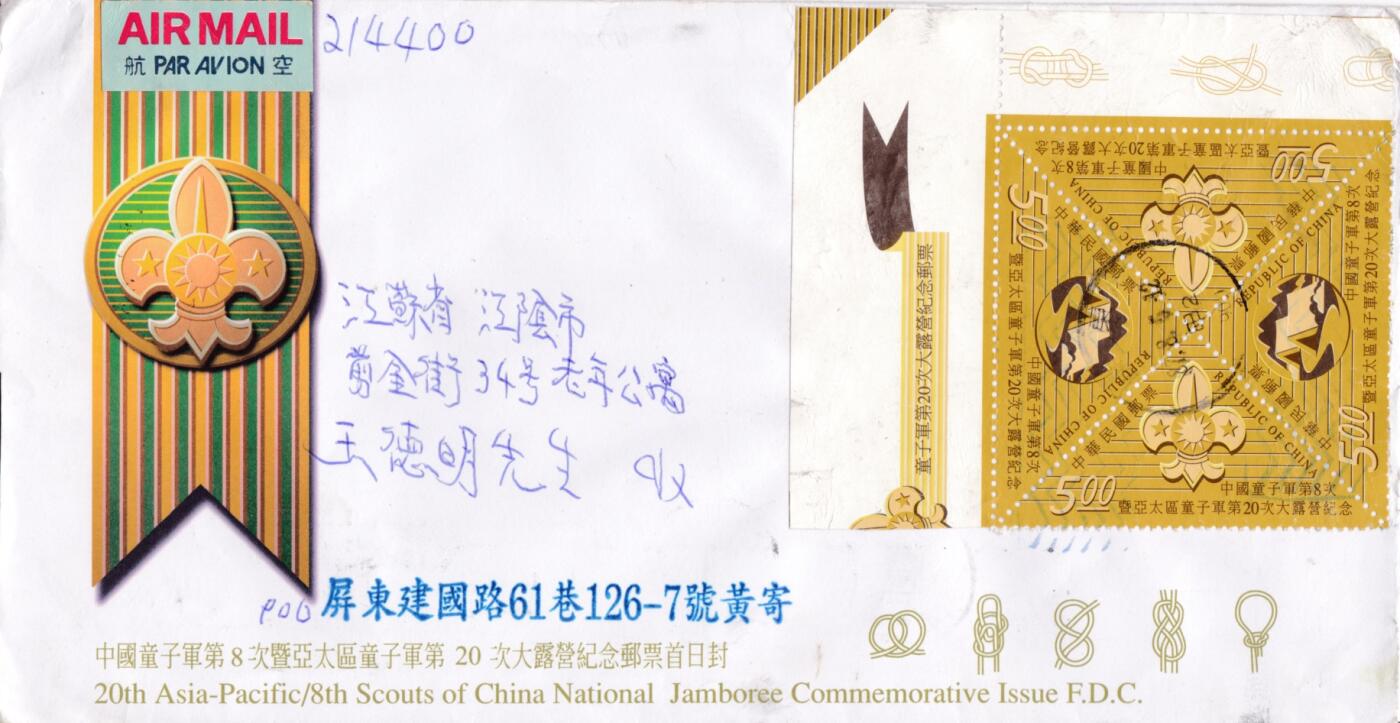 AIR MAIL
航 PAR AVION 空
214400
江蘇省 江陰市
剪金街 34号 老年公寓
王德明先生 收
900 屏東建國路61巷126-7號黃寄
中國童子軍第 8 次暨亞太區童子軍第 20 次大露營紀念郵票首日封
20th Asia-Pacific/8th Scouts of China National Jamboree Commemorative Issue F.D.C.
童子軍第20次大露營紀念郵票
中國童子軍第8次
暨亞太區童子軍第20次大露營紀念
5.00
中華民國郵票
REPUBLIC OF CHINA
中國童子軍第8次
暨亞太區童子軍第20次大露營紀念
5.00
中華民國郵票
REPUBLIC OF CHINA
中國童子軍第8次
暨亞太區童子軍第20次大露營紀念
5.00
中華民國郵票
REPUBLIC OF CHINA
中國童子軍第8次
暨亞太區童子軍第20次大露營紀念
5.00
中華民國郵票
REPUBLIC OF CHINA